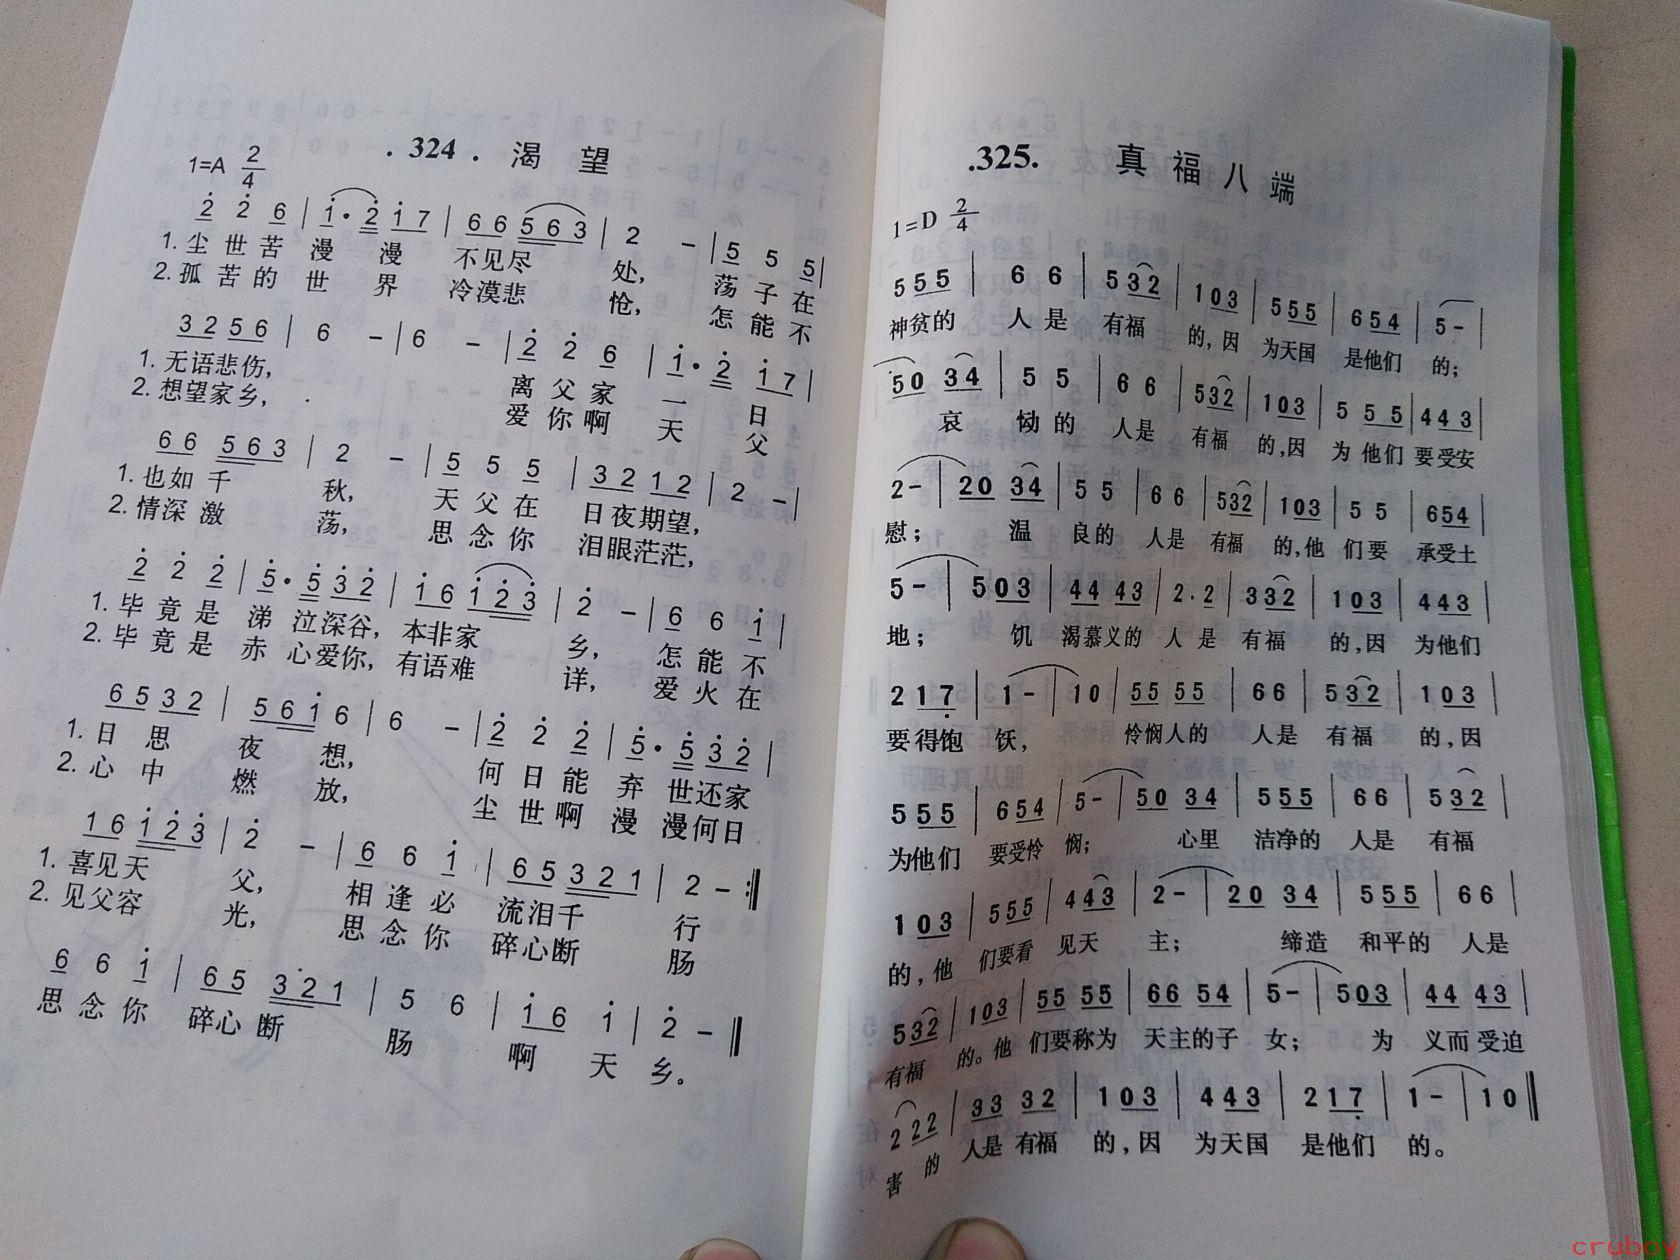 .324. 渴望
1=A 2/4
2 2 6 | 1·2 1 7 | 6 6 5 6 3 | 2 - | 5 5 5 |
1. 尘世苦漫漫不见尽处, 荡子在
2. 孤苦的世界冷漠悲怆, 怎能不
3 2 5 6 | 6 - | 6 - | 2 2 6 | 1·2 1 7 |
1. 无语悲伤, 离父家一日
2. 想望家乡, 爱你啊天父
6 6 5 6 3 | 2 - | 5 5 5 | 3 2 1 2 | 2 - |
1. 也如千秋, 天父在日夜期望,
2. 情深激荡, 思念你泪眼茫茫,
2 2 2 | 5·5 3 2 | 1 6 1 2 3 | 2 - | 6 6 1 |
1. 毕竟是涕泣深谷, 本非家乡, 怎能不
2. 毕竟是赤心爱你, 有语难详, 爱火在
6 5 3 2 | 5 6 1 6 | 6 - | 2 2 2 | 5·5 3 2 |
1. 日思夜想, 何日能弃世还家
2. 心中燃放, 尘世啊漫漫何日
1 6 1 2 3 | 2 - | 6 6 1 | 6 5 3 2 1 | 2 - :‖
1. 喜见天父, 相逢必流泪千行
2. 见父容光, 思念你碎心断肠
6 6 1 | 6 5 3 2 1 | 5 6 | 1 6 1 | 2 - ‖
思念你碎心断肠啊天乡。
.325. 真福八端
1=D 2/4
5 5 5 | 6 6 | 5 3 2 | 1 0 3 | 5 5 5 | 6 5 4 | 5 - |
神贫的人是有福的, 因为天国是他们的;
5 0 3 4 | 5 5 | 6 6 | 5 3 2 | 1 0 3 | 5 5 5 | 4 4 3 |
哀恸的人是有福的, 因为他们要受安
2 - | 2 0 3 4 | 5 5 | 6 6 | 5 3 2 | 1 0 3 | 5 5 | 6 5 4 |
慰; 温良的人是有福的, 他们要承受土
5 - | 5 0 3 | 4 4 4 3 | 2·2 | 3 3 2 | 1 0 3 | 4 4 3 |
地; 饥渴慕义的人是有福的, 因为他们
2 1 7 | 1 - | 1 0 | 5 5 5 5 | 6 6 | 5 3 2 | 1 0 3 |
要得饱饫, 怜悯人的人是有福的, 因
5 5 5 | 6 5 4 | 5 - | 5 0 3 4 | 5 5 5 | 6 6 | 5 3 2 |
为他们要受怜悯; 心里洁净的人是有福
1 0 3 | 5 5 5 | 4 4 3 | 2 - | 2 0 3 4 | 5 5 5 | 6 6 |
的, 他们要看见天主; 缔造和平的人是
5 3 2 | 1 0 3 | 5 5 5 5 | 6 6 5 4 | 5 - | 5 0 3 | 4 4 4 3 |
有福的。他们要称为天主的子女; 为义而受迫
2 2 2 | 3 3 3 2 | 1 0 3 | 4 4 3 | 2 1 7 | 1 - | 1 0 ‖
害的人是有福的, 因为天国是他们的。
cruboy